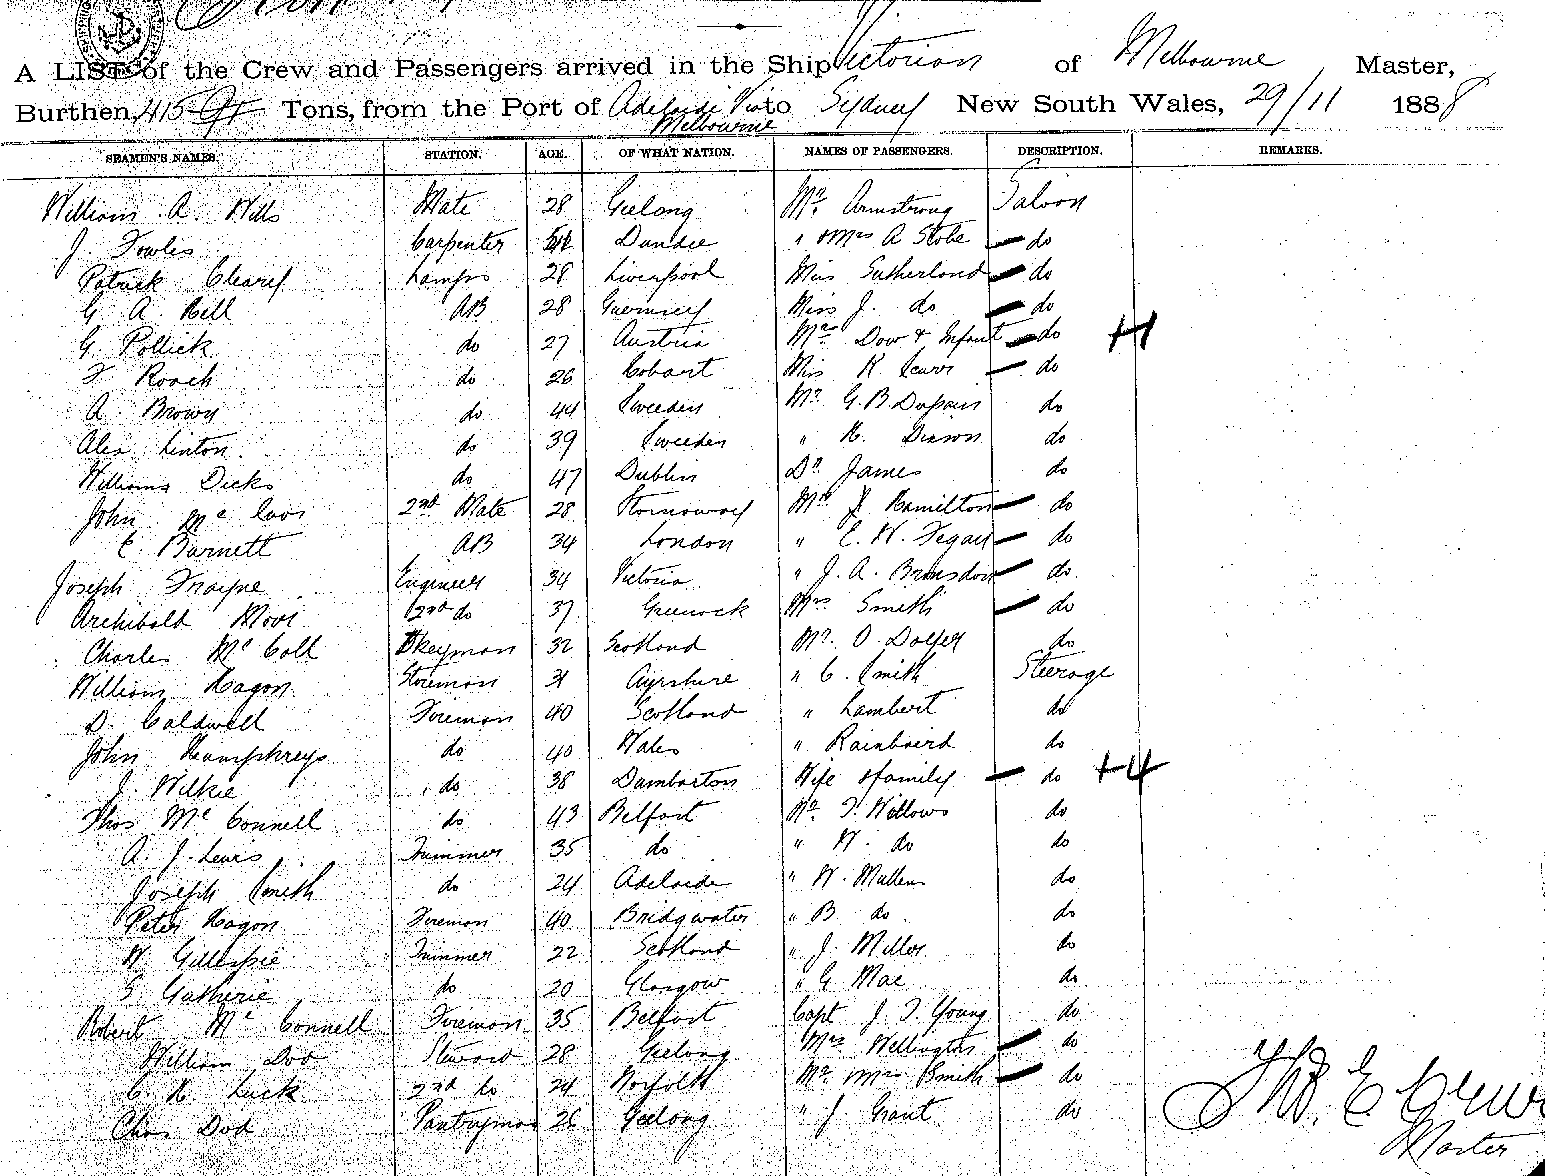 A LIST of the Crew and Passengers arrived in the Ship Victorian of Melbourne Master,
Burthen, 415 Tons, from the Port of Adelaide Via to Sydney New South Wales, 29/11 1888
Melbourne
SEAMEN'S NAMES. STATION. AGE. OF WHAT NATION. NAMES OF PASSENGERS. DESCRIPTION. REMARKS.
William A. Wills Mate 28 Geelong Mr. Armstrong Saloon
J Fowles Carpenter Dundee " & Mrs A Stobe do
Patrick Cleary Lamps 28 Liverpool Miss Sutherland do
G A. Bell AB 28 Guernsey Miss J. do do
G Pollick do 27 Austria Mrs Dow & Infant do +1
F Roach do 26 Hobart Miss K Scarr do
A. Brown do 44 Sweeden Mr G. B. Dupain do
Alex Linton do 39 Sweeden " H. Dixson do
Williams Dicks do 47 Dublin Dr. James do
John Mc 2nd Mate 28 Stornoway Mr J Hamilton do
E. Barnett AB 34 London " E. W. Fegan do
Joseph Trayne Engineer 34 Victoria " J. A. Bransdon do
Archibald Moor 2nd do 37 Greenock Mrs Smith do
Charles Mc Coll Dkeyman 32 Scotland Mr. O. Dolfer do
William Hagon Storeman 31 Ayrshire " C. Smith Steerage
D. Caldwell Fireman 40 Scotland " Lambert do
John Humphreys do 40 Wales " Rainbaird do
J. Wilkie do 38 Dumbarton Wife & family do +4
Thos Mc Connell do 43 Belfast Mr. T. Willows do
A. J. Lewis Trimmer 35 do " W. do do
Joseph Smith do 24 Adelaide " W. Mullens do
Peter Hagon Fireman 40 Bridgwater " B do do
W Gillespie Trimmer 22 Scotland " J. Miller do
G Gutherie do 20 Glasgow " G Mac do
Robert Mc Connell Fireman 35 Belfast Capt J. T. Young do
William Dod Steward 28 Geelong Mrs Wellington do
C. H Luck 2nd do 24 Norfolk Mr & Mrs Smith do
Chas Dod Pantryman 26 Geelong " J Grant do
Thos. E Crew
Master